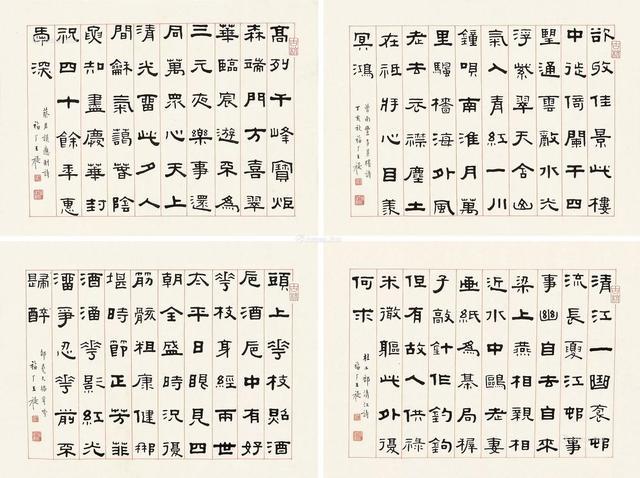 欲收佳景此樓
中徙倚闌干四
望通雲亂水光
浮紫翠天含山
氣入青紅一川
鐘唄南淮月萬
里颿檣海外風
老去衣襟塵土
在祇將心目羨
冥鴻
曾南豐多景樓詩
丁亥秋福厂王褆
高列千峰寶炬
森端門方喜翠
華臨宸遊不為
三元夜樂事還
同萬眾心天上
清光留此夕人
間龢氣閣春陰
要知盡慶華封
祝四十餘年惠
愛深
蔡君謨應制詩
福厂王褆
清江一曲裒邨
流長夏江邨事
事幽自去自來
梁上燕相親相
近水中鷗老妻
畫紙為棊局稚
子敲針作釣鉤
但有故人供祿
米微軀此外復
何求
杜工部清江詩
福厂王褆
頭上花枝照酒
巵酒巵中有好
花枝身經兩世
太平日眼見四
朝全盛時況復
筋骸粗康健那
堪時節正芳菲
酒涵花影紅光
溜爭忍花前不
歸醉
邵堯夫插花吟
福厂王褆